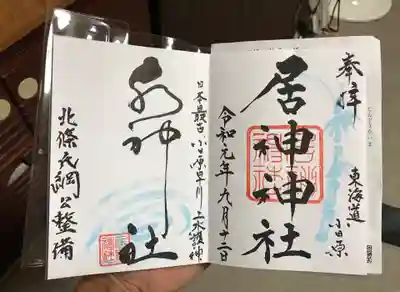 奉拝
東海道
小田原
居神神社
令和元年九月十二日
日本最古 小田原早川上水護神
水神社
北條氏綱公整備